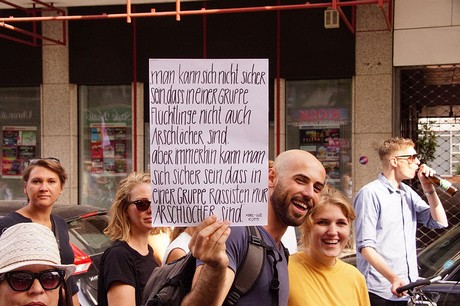 man kann sich nicht sicher
sein, dass in einer Gruppe
Flüchtlinge nicht auch
Arschlöcher sind.
aber immerhin kann man
sich sicher sein, dass in
einer Gruppe Rassisten nur
Arschlöcher sind.